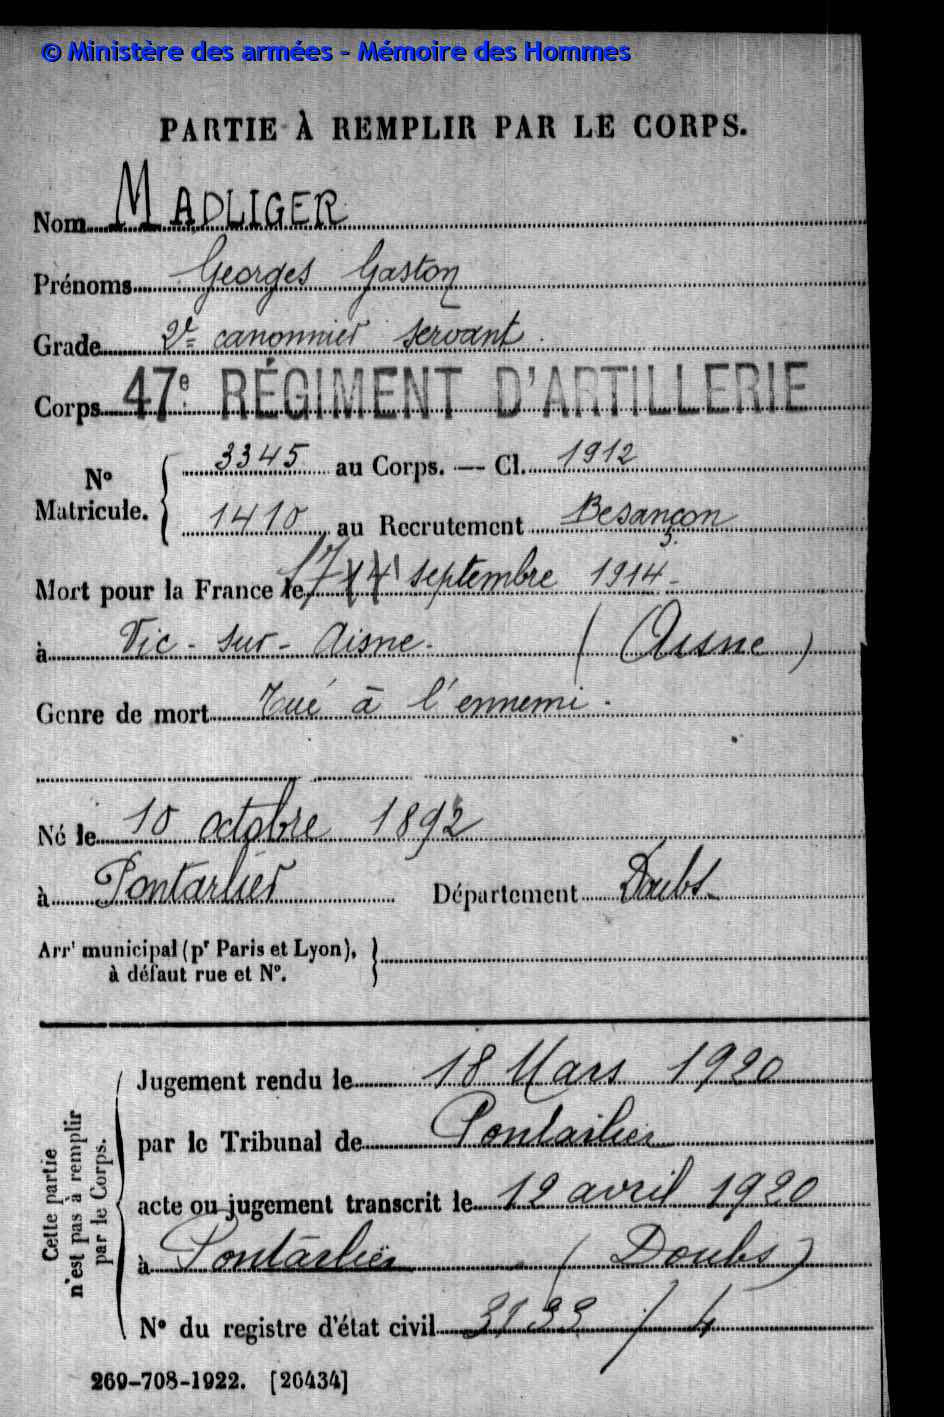 © Ministère des armées - Mémoire des Hommes
PARTIE À REMPLIR PAR LE CORPS.
Nom MADLIGER
Prénoms Georges Gaston
Grade 2e canonnier servant.
Corps 47e RÉGIMENT D'ARTILLERIE
No Matricule. { 3345 au Corps. — Cl. 1912
1410 au Recrutement Besançon
Mort pour la France le 17 septembre 1914 -
à Vic-sur-Aisne. (Aisne)
Genre de mort Tué à l'ennemi.
Né le 10 octobre 1892
à Pontarlier Département Doubs
Arrt municipal (pr Paris et Lyon), à défaut rue et No. }
Cette partie n'est pas à remplir par le Corps.
Jugement rendu le 18 Mars 1920
par le Tribunal de Pontarlier
acte ou jugement transcrit le 12 avril 1920
à Pontarlier (Doubs)
No du registre d'état civil / 4
269-708-1922. [26434]